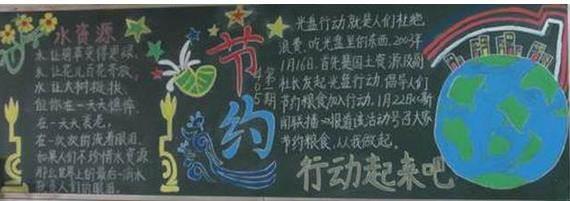 水资源
水让烟草变得更绿,
水让花儿百花齐放,
水让大树挺拔
但你在一天天憔悴,
在一天天衰老,
在一次次的流着眼泪,
如果人们不珍惜水资源
那么世界上的最后一滴水
节约
第一期
405
光盘行动就是人们杜绝
浪费,吃光盘里的东西.2013年
1月16日.首先是国土资源报副
社长发起光盘行动,倡导人们
节约粮食加入行动.1月22日《新
闻联播》报道该活动号召大家
节约粮食.从我做起.
行动起来吧